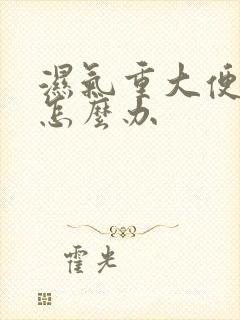 濕氣重大便
怎麼办
霍光